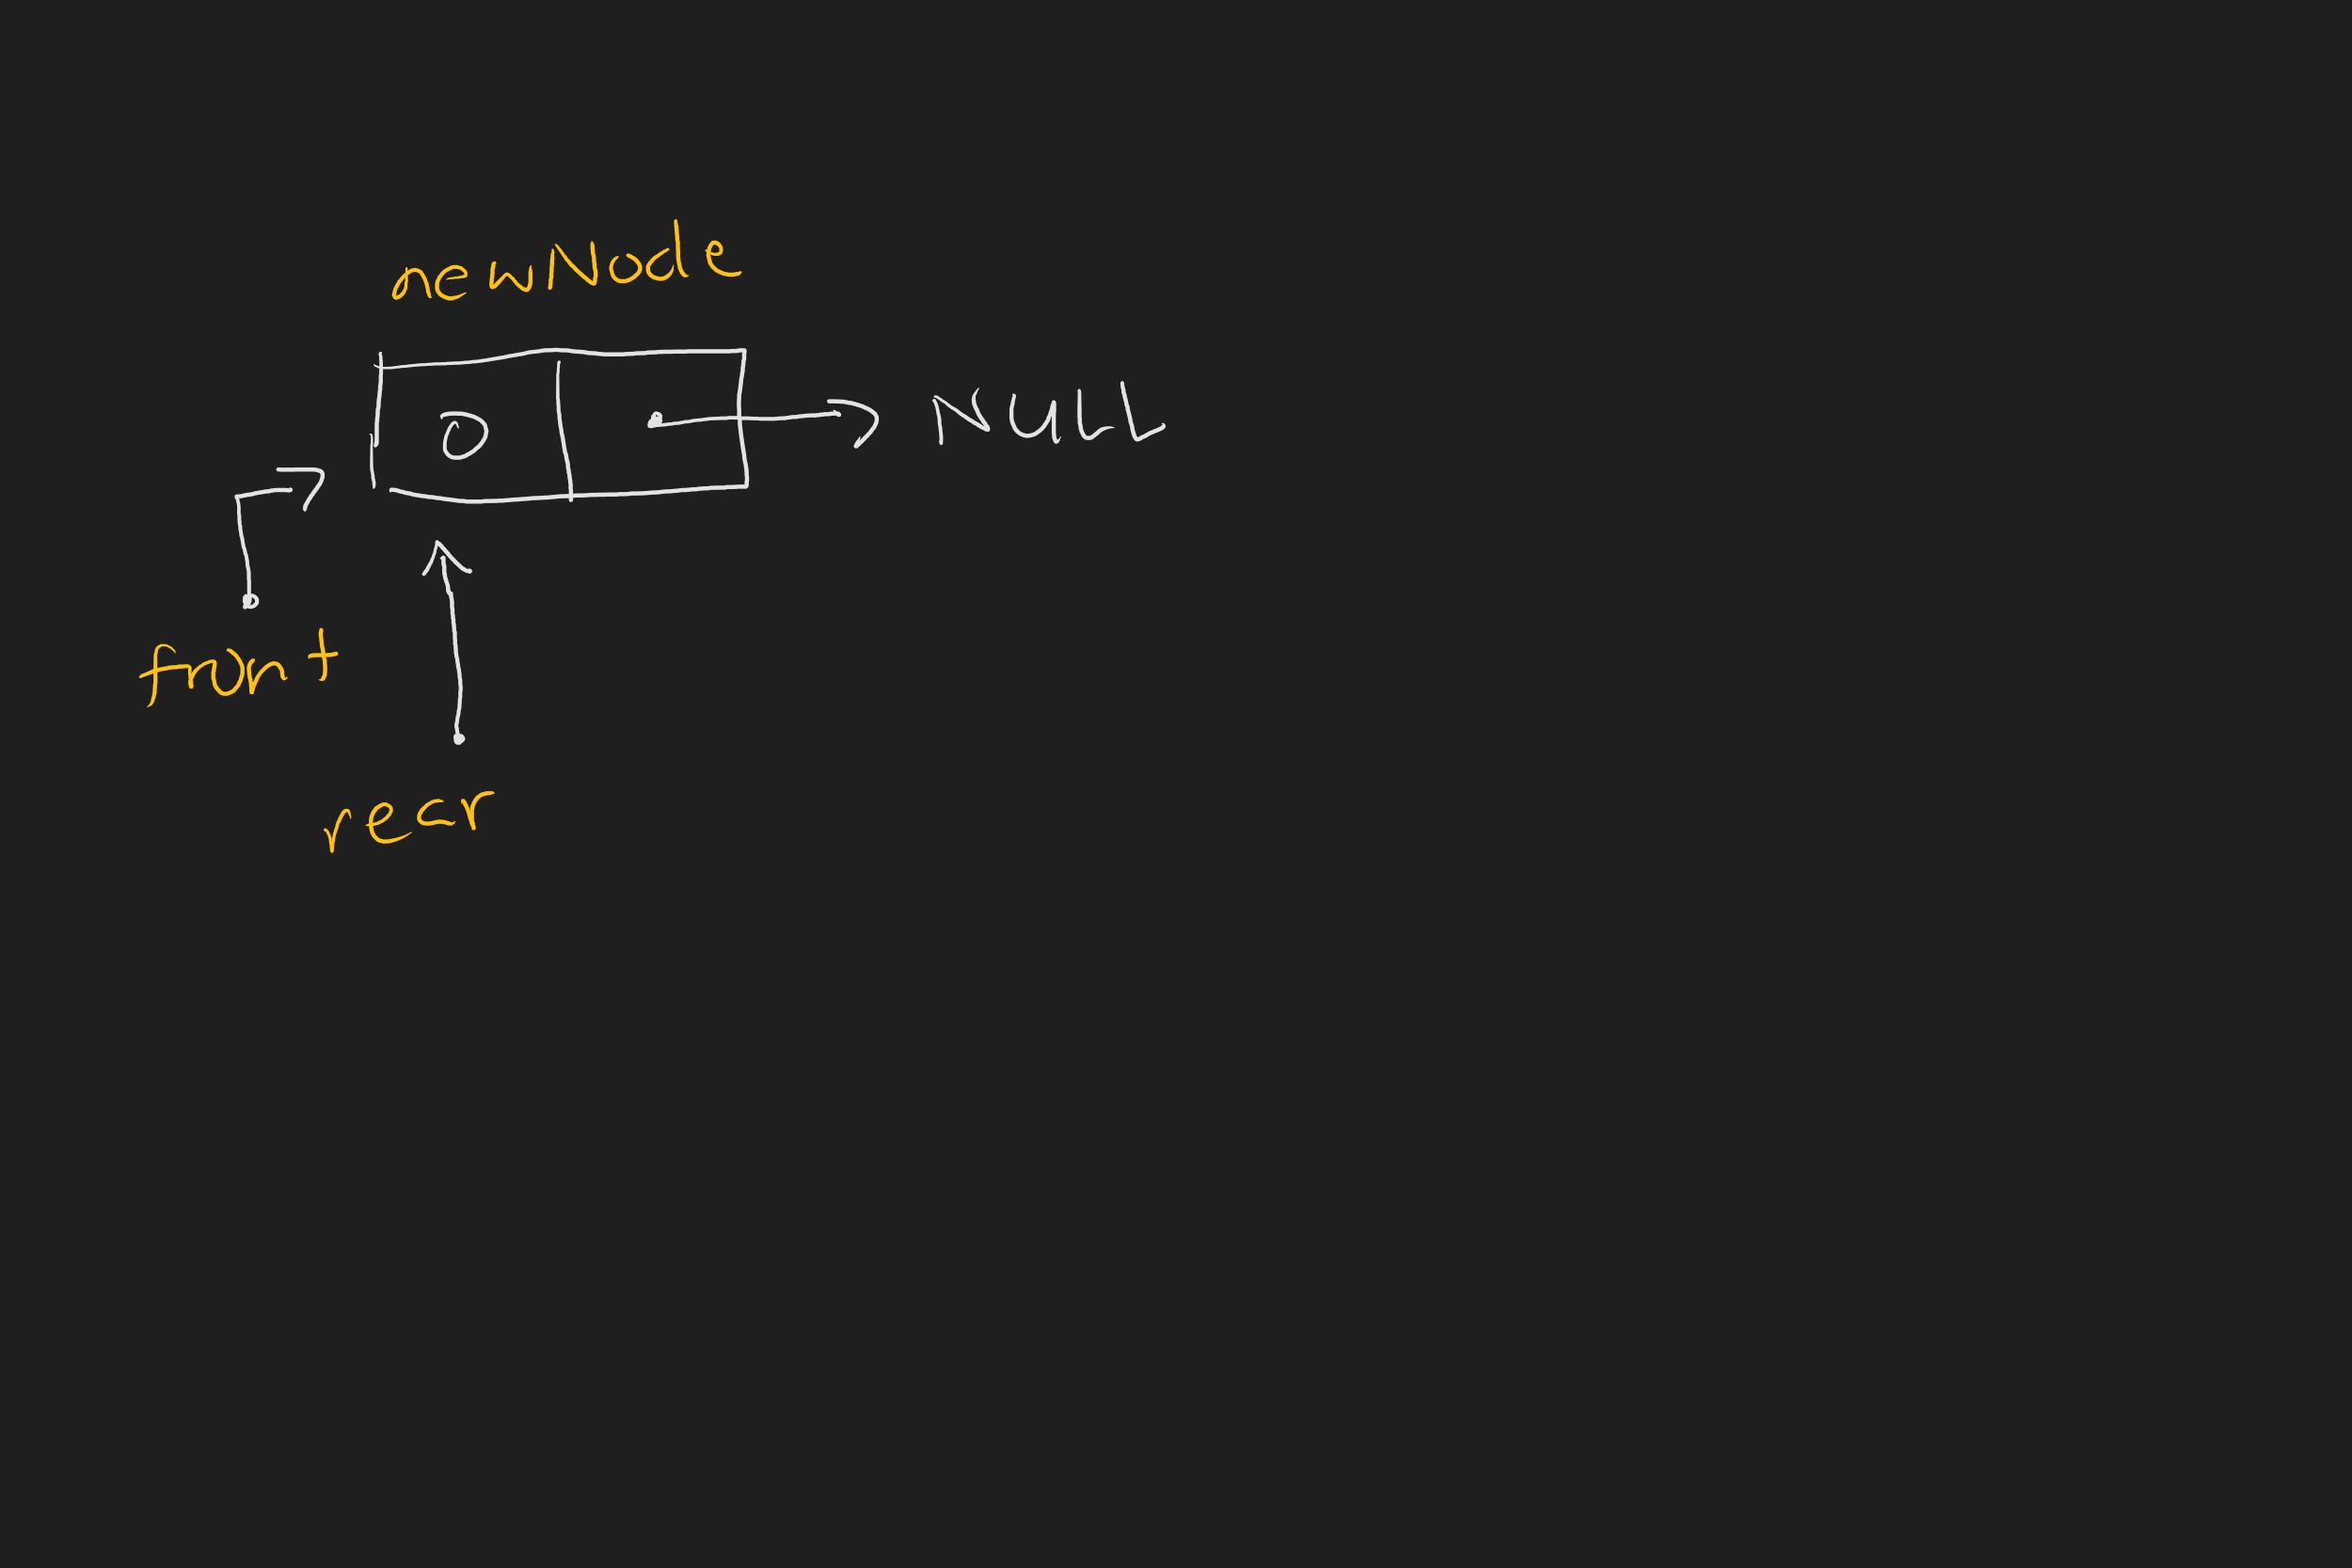 newNode
0
NULL
front
rear